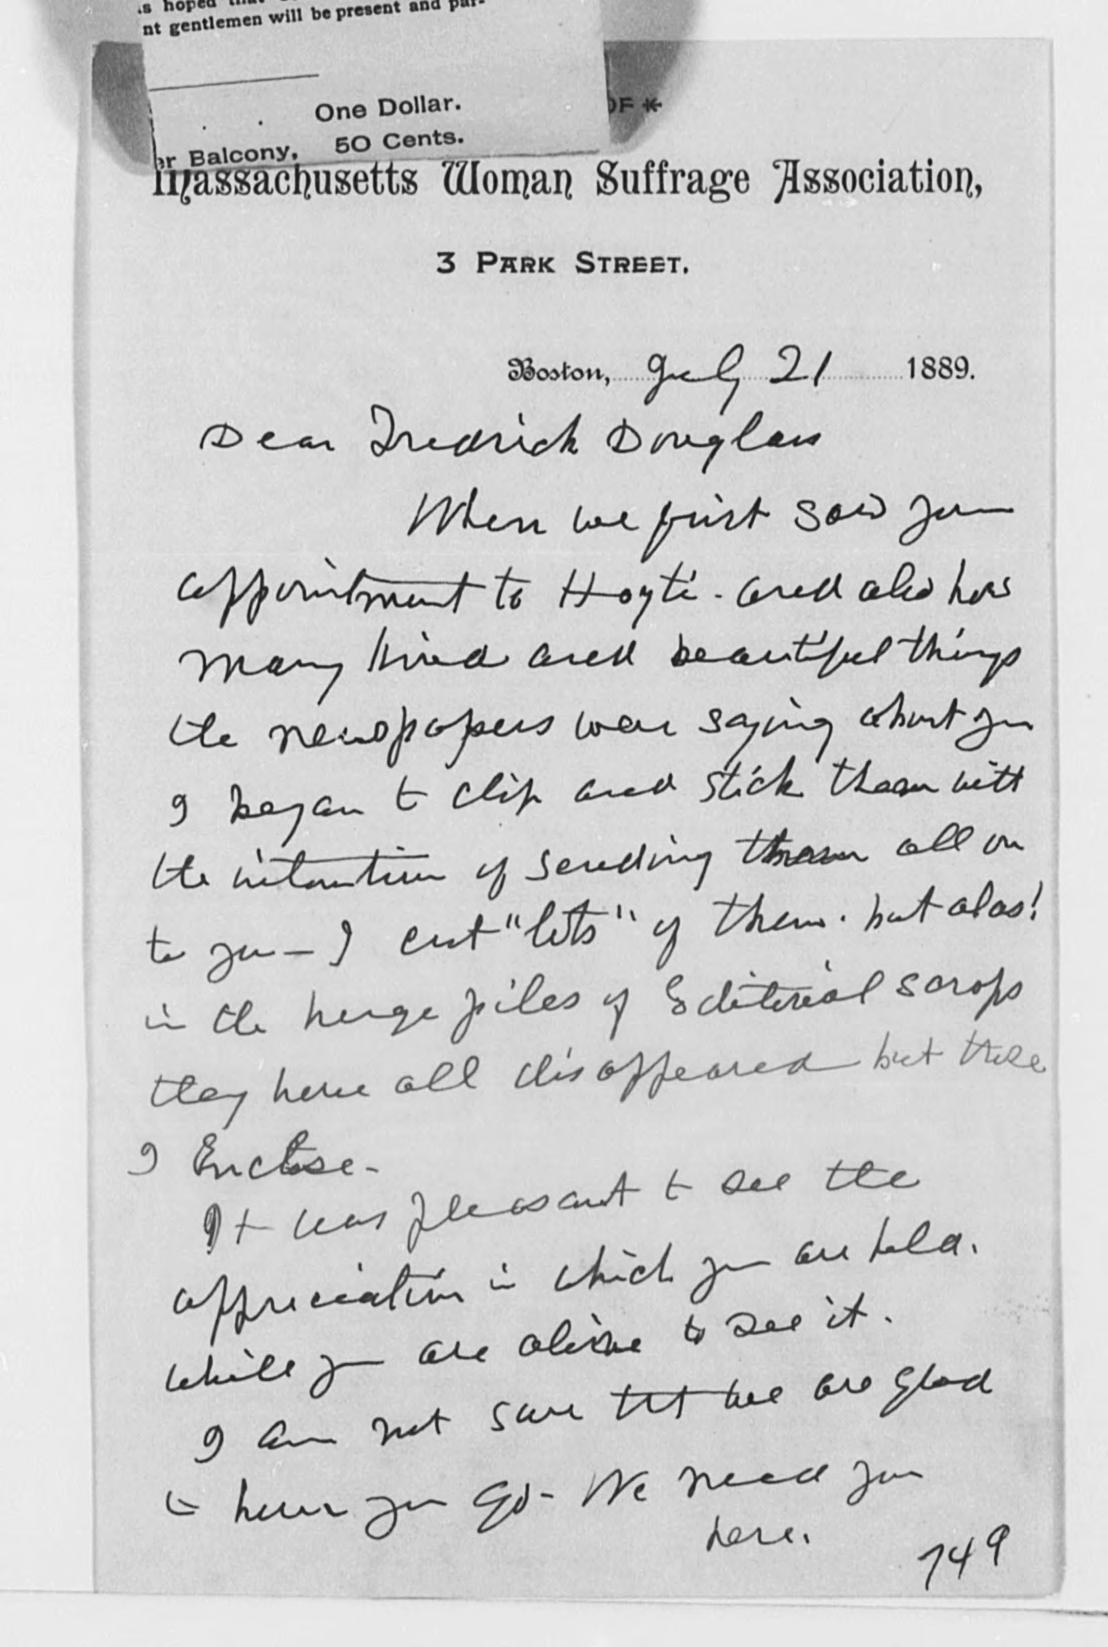 is hoped
nt gentlemen will be present and par-
One Dollar.
er Balcony, 50 Cents.
OF *
Massachusetts Woman Suffrage Association,
3 PARK STREET.
Boston, July 21 1889.
Dear Fredrick Douglass
When we first saw your
appointment to Hayti - and also how
many kind and beautiful things
the newspapers were saying about you
I began to clip and stick them with
the intention of sending them all on
to you - I cut "lots" of them. but alas!
in the huge piles of Editorial scraps
they have all disappeared but these
I Enclose -
It was pleasant to see the
appreciation in which you are held.
while you are alive to see it.
I am not sure tht we are glad
to have you go - We need you
here.
749